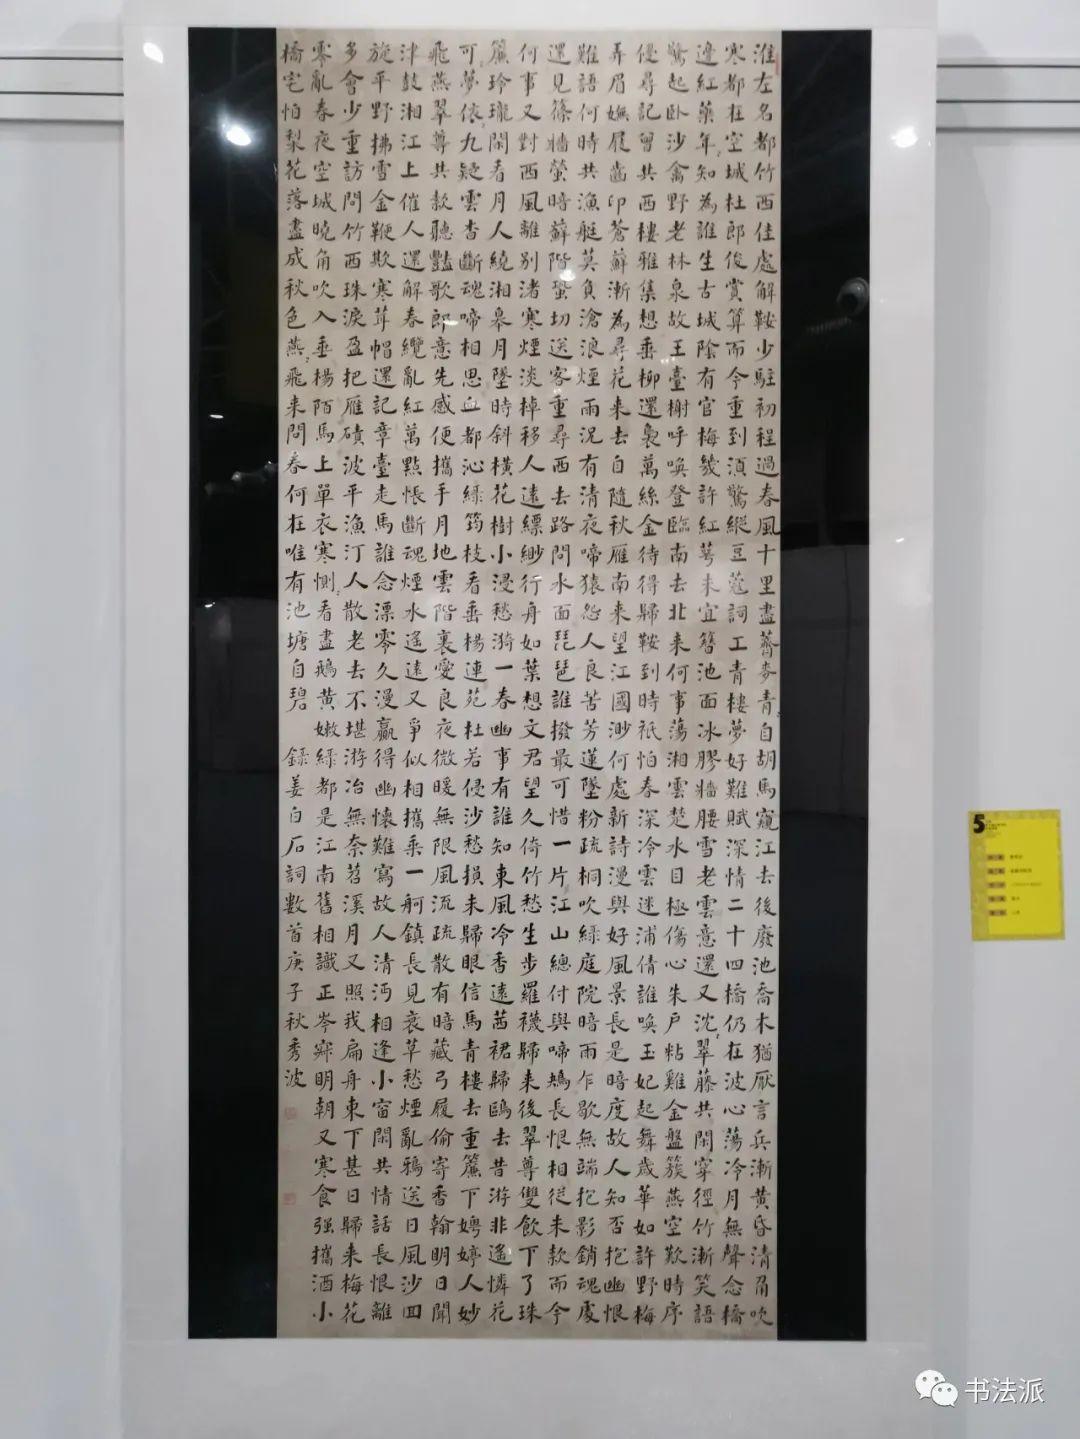 淮左名都竹西佳處解鞍少駐初程過春風十里盡薺麥青々自胡馬窺江去後廢池喬木猶厭言兵漸黃昏清角吹
寒都在空城杜郎俊賞算而今重到須驚縱豆蔻詞工青樓夢好難賦深情二十四橋仍在波心蕩冷月無聲念橋
邊紅藥年々知為誰生古城陰有官梅幾許紅萼未宜簪池面冰膠牆腰雪老雲意還又沈々翠藤共閑穿徑竹漸笑語
驚起臥沙禽野老林泉故王臺榭呼喚登臨南去北來何事蕩湘雲楚水目極傷心朱戶粘雞金盤簇燕空歎時序
侵尋記曾共西樓雅集想垂柳還裊萬絲金待得歸鞍到時衹怕春深冷雲迷浦倩誰喚玉妃起舞歲華如許野梅
弄眉嫵屐齒印蒼蘚漸為尋花來去自隨秋雁南來望江國渺何處新詩漫與好風景長是暗度故人知否抱幽恨
難語何時共漁艇莫負滄浪煙雨況有清夜啼猿怨人良苦芳蓮墜粉疏桐吹綠庭院暗雨乍歇無端抱影銷魂處
還見篠牆螢暗蘚階蛩切送客重尋西去路問水面琵琶誰撥最可惜一片江山總付與啼鴂長恨相從未款而今
何事又對西風離別渚寒煙淡棹移人遠縹緲行舟如葉想文君望久倚竹愁生步羅襪歸來後翠尊雙飲下了珠
簾玲瓏閑看月人繞湘皋月墜時斜橫花樹小浸愁漪一春幽事有誰知東風冷香遠茜裙歸鷗去昔游非遙憐花
可々夢依々九疑雲杳斷魂啼相思血都沁綠筠枝看垂楊連苑杜若侵沙愁損未歸眼信馬青樓去重簾下娉婷人妙
飛燕翠尊共款聽豔歌郎意先感便攜手月地雲階裏愛良夜微暖無限風流疏散有暗藏弓履偷寄香翰明日聞
津鼓湘江上催人還解春纜亂紅萬點悵斷魂煙水遙遠又爭似相攜乘一舸鎮長見衰草愁煙亂鴉送日風沙回
旋平野拂雪金鞭欺寒茸帽還記章臺走馬誰念漂零久漫贏得幽懷難寫故人清沔相逢小窗閑共情話長恨離
多會少重訪問竹西珠淚盈把雁磧波平漁汀人散老去不堪游冶無奈苕溪月又照我扁舟東下甚日歸來梅花
零亂春夜空城曉角吹入垂楊陌馬上單衣寒惻々看盡鵝黃嫩綠都是江南舊相識正岑寂明朝又寒食強攜酒小
橋宅怕梨花落盡成秋色燕々飛來問春何在唯有池塘自碧 錄姜白石詞數首庚子秋秀波
5
书法派